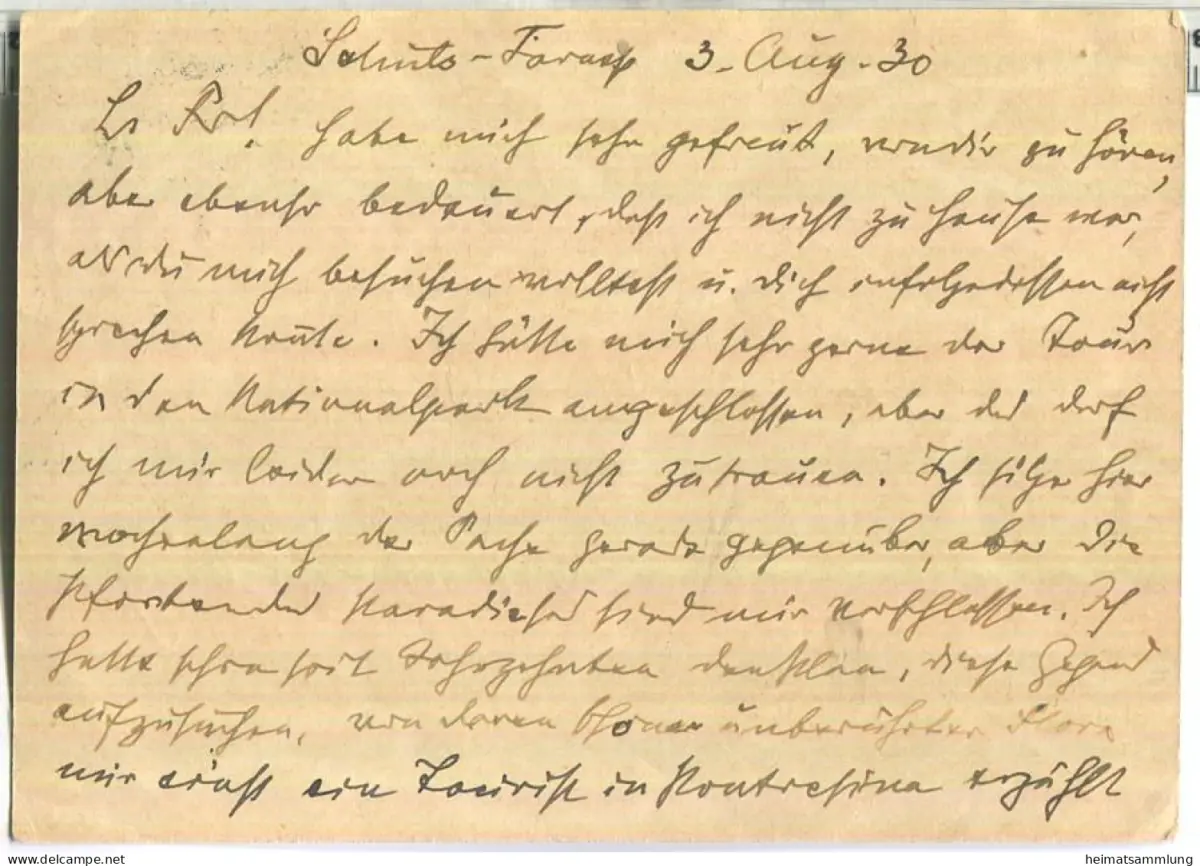 Schuls-Tarasp 3. Aug. 30
habe mich sehr gefreut, von dir zu hören,
aber ebenso bedauert, daß ich nicht zu Hause war,
als du mich besuchen wolltest u. dich infolgedessen nicht
sprechen konnte. Ich hätte mich sehr gerne der Tour
in den Nationalpark angeschlossen, aber das darf
ich mir leider noch nicht zutrauen. Ich sitze hier
wochenlang der Sache gerade gegenüber, aber die
Pforten des Paradieses sind mir verschlossen. Ich
hatte schon seit Jahrzehnten den Plan, diese Gegend
aufzusuchen, von deren schöner unberührter Flora
mir einst ein Tourist in Pontresina erzählt
heimatsammlung